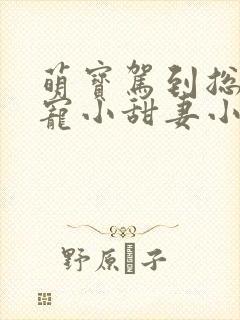 萌寶駕到總
寵小甜妻小
野原�子